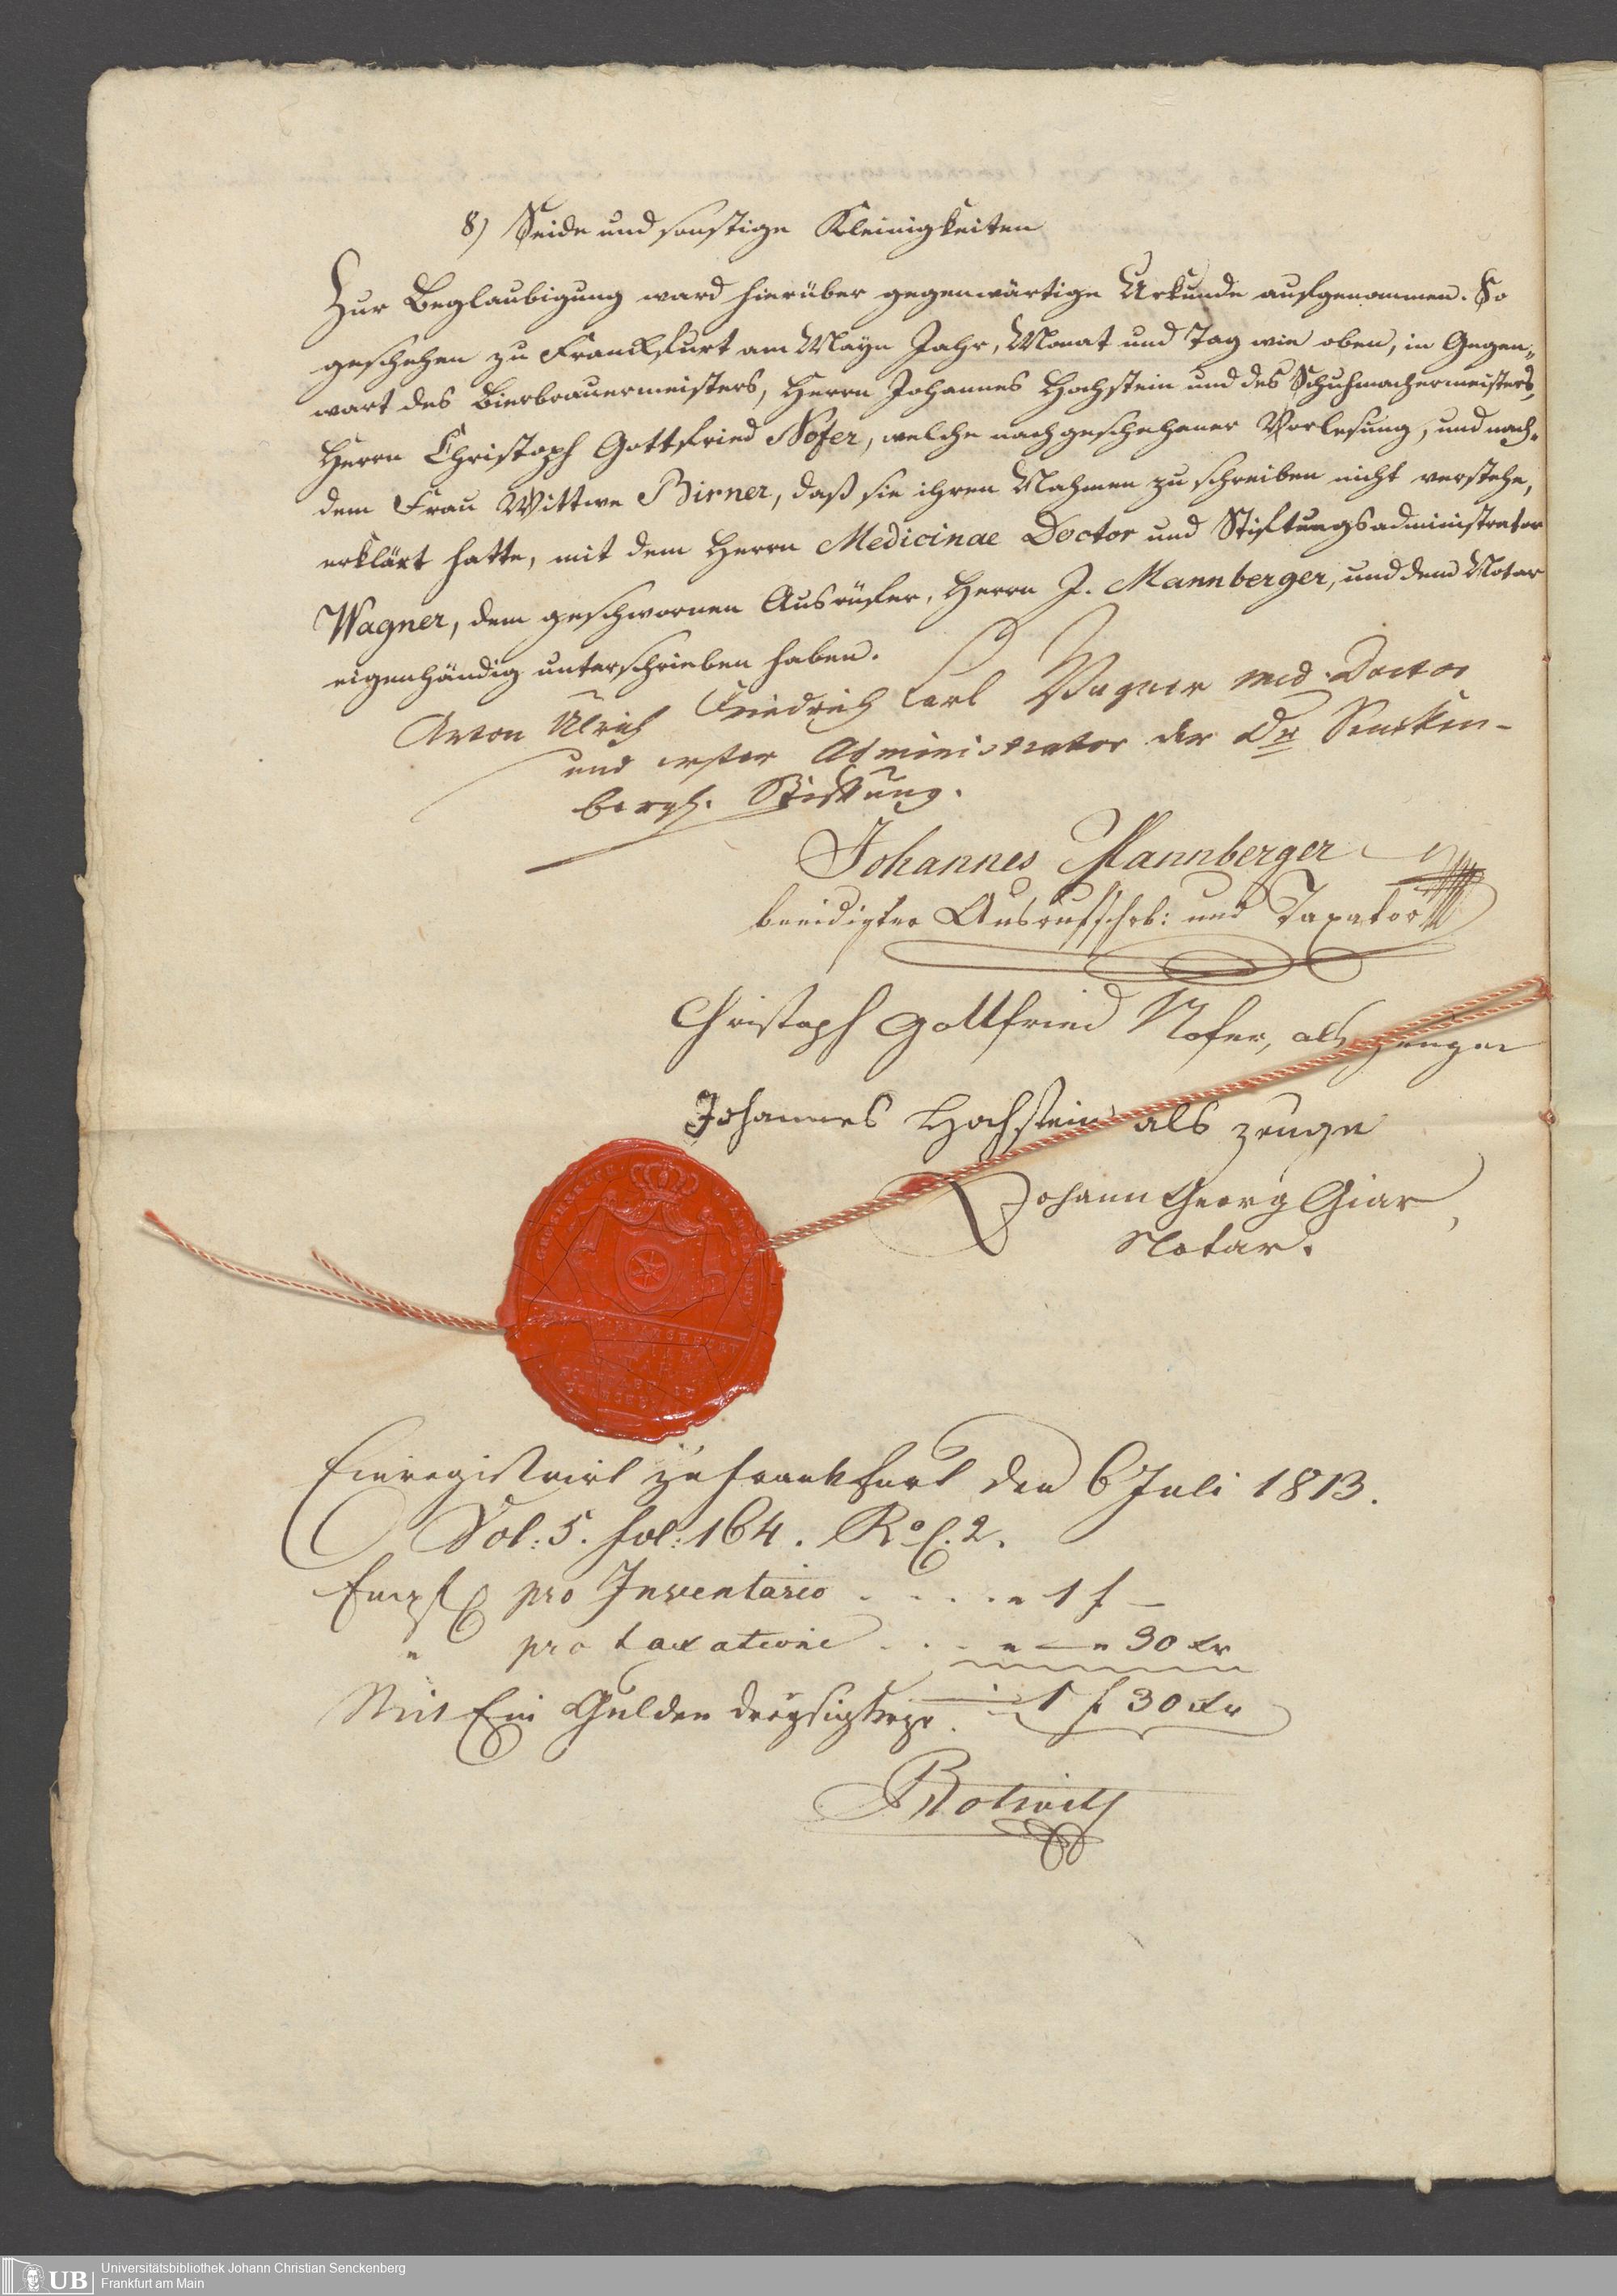 8) Seide und sonstige Kleinigkeiten
Zur Beglaubigung ward hierüber gegenwärtige Urkunde aufgenommen. So
geschehen zu Franckfurt am Mayn Jahr, Monat und Tag wie oben, in Gegen„
wart des Bierbrauermeisters, Herrn Johannes Hochstein und des Schuhmachermeisters,
Herrn Christoph Gottfried Nofer, welche nach geschehener Vorlesung, und nach„
dem Frau Wittwe Birner, daß sie ihren Nahmen zu schreiben nicht verstehe,
erklärt hatte, mit dem Herrn Medicinae Doctor und Stiftungsadministrator
Wagner, dem geschwornen Ausrüfer, Herrn J. Mannberger, und dem Notar
eigenhändig unterschrieben haben.
Anton Ulrich Friedrich Carl Wagner Med. Doctor
und erster Administrator der Dr Sencken-
bergs. Stiftung.
Johannes Mannberger
beeidigter Ausrufschrb: und Taxator
Christoph Gottfried Nofer, als zeuge
Johannes Hochstein als zeuge
Johann Georg Giar,
Notar.
GROSHERZOGTH.
Einregistrirt zu Frankfurt den 6 Juli 1813.
Vol: 5. fol: 164. Ro C. 2.
Empf pro Inventario . . . . „ 1 f —
„ pro taxatione . . . „ — „ 30 Xr
Mit Ein Gulden dreysig kr . — 1 f 30 Xr
UB
Universitätsbibliothek Johann Christian Senckenberg
Frankfurt am Main